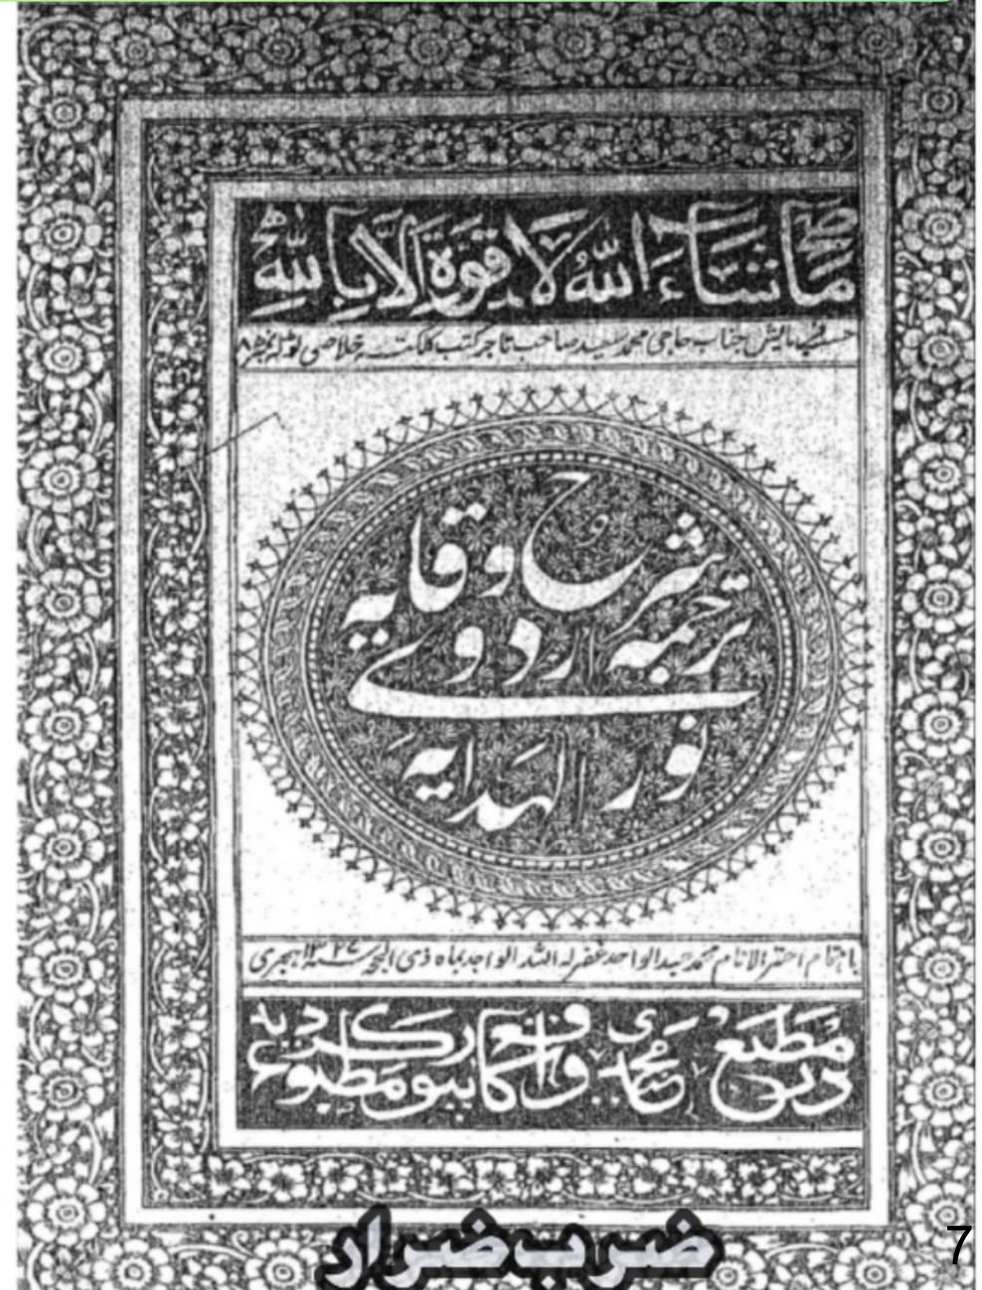 ما شاء اللّٰه لا قوة الا باللّٰه
حسب فرمایش جناب حاجی محمد سعید صاحب تاجر کتب کلکتہ خلاصی ٹولہ نمبر ۸۵
ترجمہ شرح وقایہ
اردوے
نور الہدایہ
باہتمام احقر الانام محمد عبدالواحد غفر لہ اللہ الواجد بماہ ذی الحجہ ۱۳۲۷ ہجری
در مطبع مجیدی واقع کانپور مطبوع گردید
ضرب ضرار
7